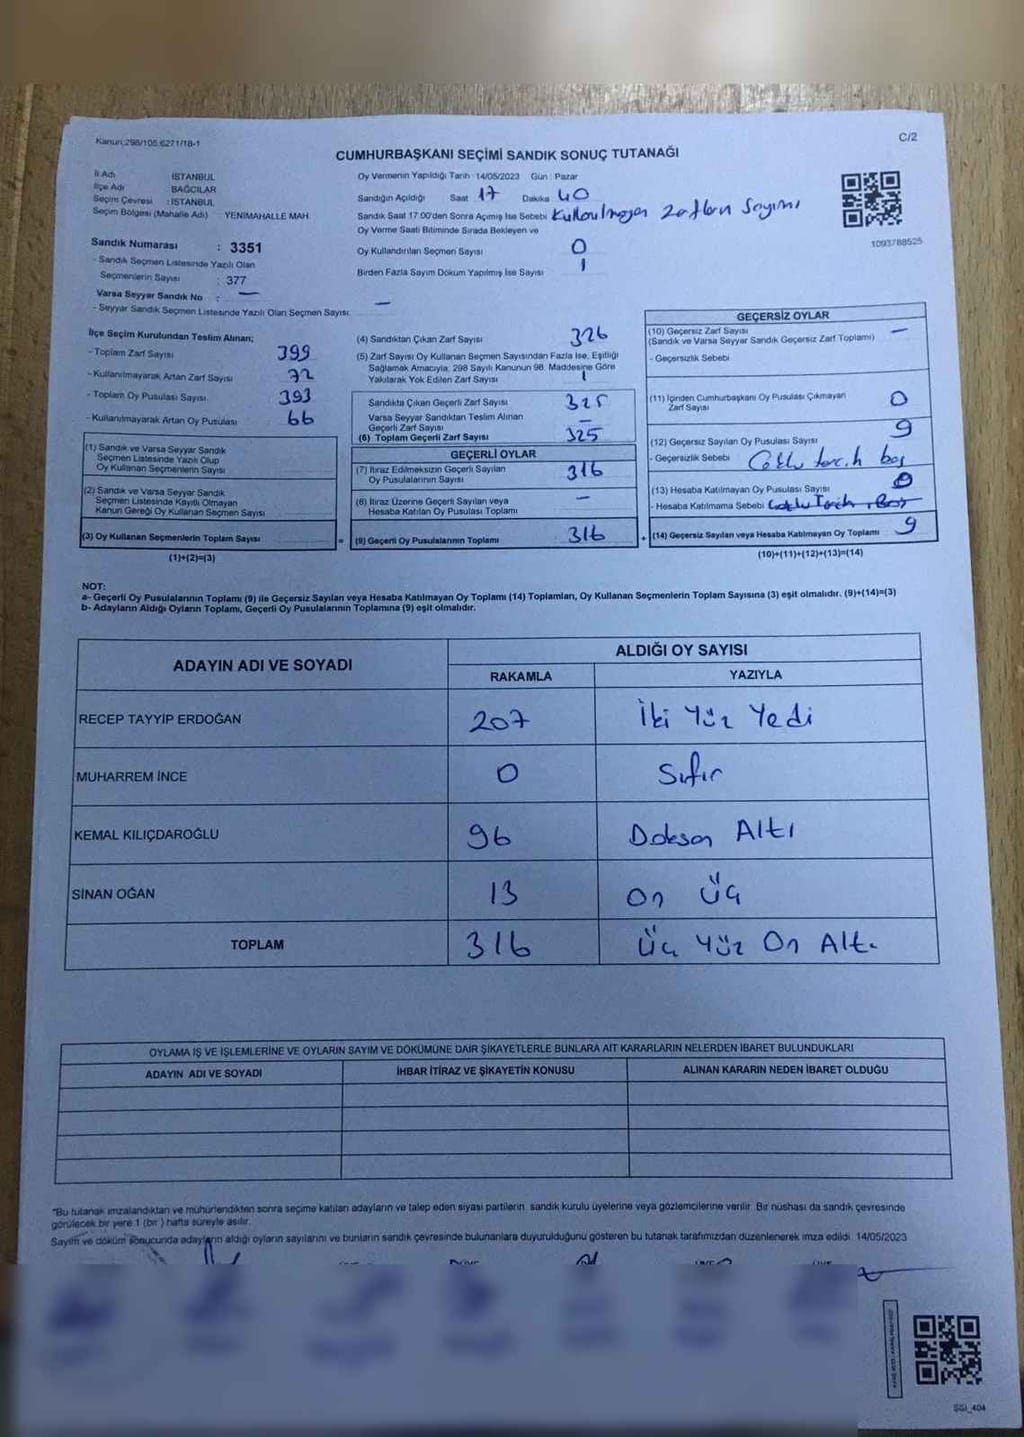 Kanun:298/105,6271/18-1
C/2
CUMHURBAŞKANI SEÇİMİ SANDIK SONUÇ TUTANAĞI
İl Adı İSTANBUL
İlçe Adı BAĞCILAR
Seçim Çevresi : İSTANBUL
Seçim Bölgesi (Mahalle Adı) YENİMAHALLE MAH
Oy Vermenin Yapıldığı Tarih : 14/05/2023 Gün : Pazar
Sandığın Açıldığı Saat 17 Dakika 40
Sandık Saat 17.00'den Sonra Açımış İse Sebebi Kullanılmayan zarfların sayımı
Oy Verme Saati Bitiminde Sırada Bekleyen ve
Oy Kullandırılan Seçmen Sayısı 0
Birden Fazla Sayım Döküm Yapılmış İse Sayısı 1
1093788525
Sandık Numarası : 3351
- Sandık Seçmen Listesinde Yazılı Olan
Seçmenlerin Sayısı : 377
Varsa Seyyar Sandık No : —
- Seyyar Sandık Seçmen Listesinde Yazılı Olan Seçmen Sayısı: —
İlçe Seçim Kurulundan Teslim Alınan;
- Toplam Zarf Sayısı 399
- Kullanılmayarak Artan Zarf Sayısı 72
- Toplam Oy Pusulası Sayısı 393
- Kullanılmayarak Artan Oy Pusulası 66
(1) Sandık ve Varsa Seyyar Sandık
Seçmen Listesinde Yazılı Olup
Oy Kullanan Seçmenlerin Sayısı
(2) Sandık ve Varsa Seyyar Sandık
Seçmen Listesinde Kayıtlı Olmayan
Kanun Gereği Oy Kullanan Seçmen Sayısı
(3) Oy Kullanan Seçmenlerin Toplam Sayısı =
(1)+(2)=(3)
(4) Sandıktan Çıkan Zarf Sayısı 326
(5) Zarf Sayısı Oy Kullanan Seçmen Sayısından Fazla İse, Eşitliği
Sağlamak Amacıyla, 298 Sayılı Kanunun 98. Maddesine Göre
Yakılarak Yok Edilen Zarf Sayısı 1
Sandıkta Çıkan Geçerli Zarf Sayısı 325
Varsa Seyyar Sandıktan Teslim Alınan
Geçerli Zarf Sayısı —
(6) Toplam Geçerli Zarf Sayısı 325
GEÇERLİ OYLAR
(7) İtiraz Edilmeksizin Geçerli Sayılan
Oy Pusulalarının Sayısı 316
(8) İtiraz Üzerine Geçerli Sayılan veya
Hesaba Katılan Oy Pusulası Toplamı —
(9) Geçerli Oy Pusulalarının Toplamı 316 +
GEÇERSİZ OYLAR
(10) Geçersiz Zarf Sayısı —
(Sandık ve Varsa Seyyar Sandık Geçersiz Zarf Toplamı)
- Geçersizlik Sebebi
(11) İçinden Cumhurbaşkanı Oy Pusulası Çıkmayan
Zarf Sayısı 0
(12) Geçersiz Sayılan Oy Pusulası Sayısı 9
- Geçersizlik Sebebi Çoklu tercih boş
(13) Hesaba Katılmayan Oy Pusulası Sayısı 0
- Hesaba Katılmama Sebebi Çoklu Tercih, Boş
(14) Geçersiz Sayılan veya Hesaba Katılmayan Oy Toplamı 9
(10)+(11)+(12)+(13)=(14)
NOT:
a- Geçerli Oy Pusulalarının Toplamı (9) ile Geçersiz Sayılan veya Hesaba Katılmayan Oy Toplamı (14) Toplamları, Oy Kullanan Seçmenlerin Toplam Sayısına (3) eşit olmalıdır. (9)+(14)=(3)
b- Adayların Aldığı Oyların Toplamı, Geçerli Oy Pusulalarının Toplamına (9) eşit olmalıdır.
ADAYIN ADI VE SOYADI
ALDIĞI OY SAYISI
RAKAMLA YAZIYLA
RECEP TAYYİP ERDOĞAN 207 İki Yüz Yedi
MUHARREM İNCE 0 Sıfır
KEMAL KILIÇDAROĞLU 96 Doksan Altı
SİNAN OĞAN 13 On Üç
TOPLAM 316 Üç Yüz On Altı
OYLAMA İŞ VE İŞLEMLERİNE VE OYLARIN SAYIM VE DÖKÜMÜNE DAİR ŞİKAYETLERLE BUNLARA AİT KARARLARIN NELERDEN İBARET BULUNDUKLARI
ADAYIN ADI VE SOYADI İHBAR İTİRAZ VE ŞİKAYETİN KONUSU ALINAN KARARIN NEDEN İBARET OLDUĞU
"Bu tutanak imzalandıktan ve mühürlendikten sonra seçime katılan adayların ve talep eden siyasi partilerin sandık kurulu üyelerine veya gözlemcilerine verilir. Bir nüshası da sandık çevresinde
görülecek bir yere 1 (bir ) hafta süreyle asılır.
Sayım ve döküm sonucunda adayların aldığı oyların sayılarını ve bunların sandık çevresinde bulunanlara duyurulduğunu gösteren bu tutanak tarafımızdan düzenlenerek imza edildi. 14/05/2023
SSI_404